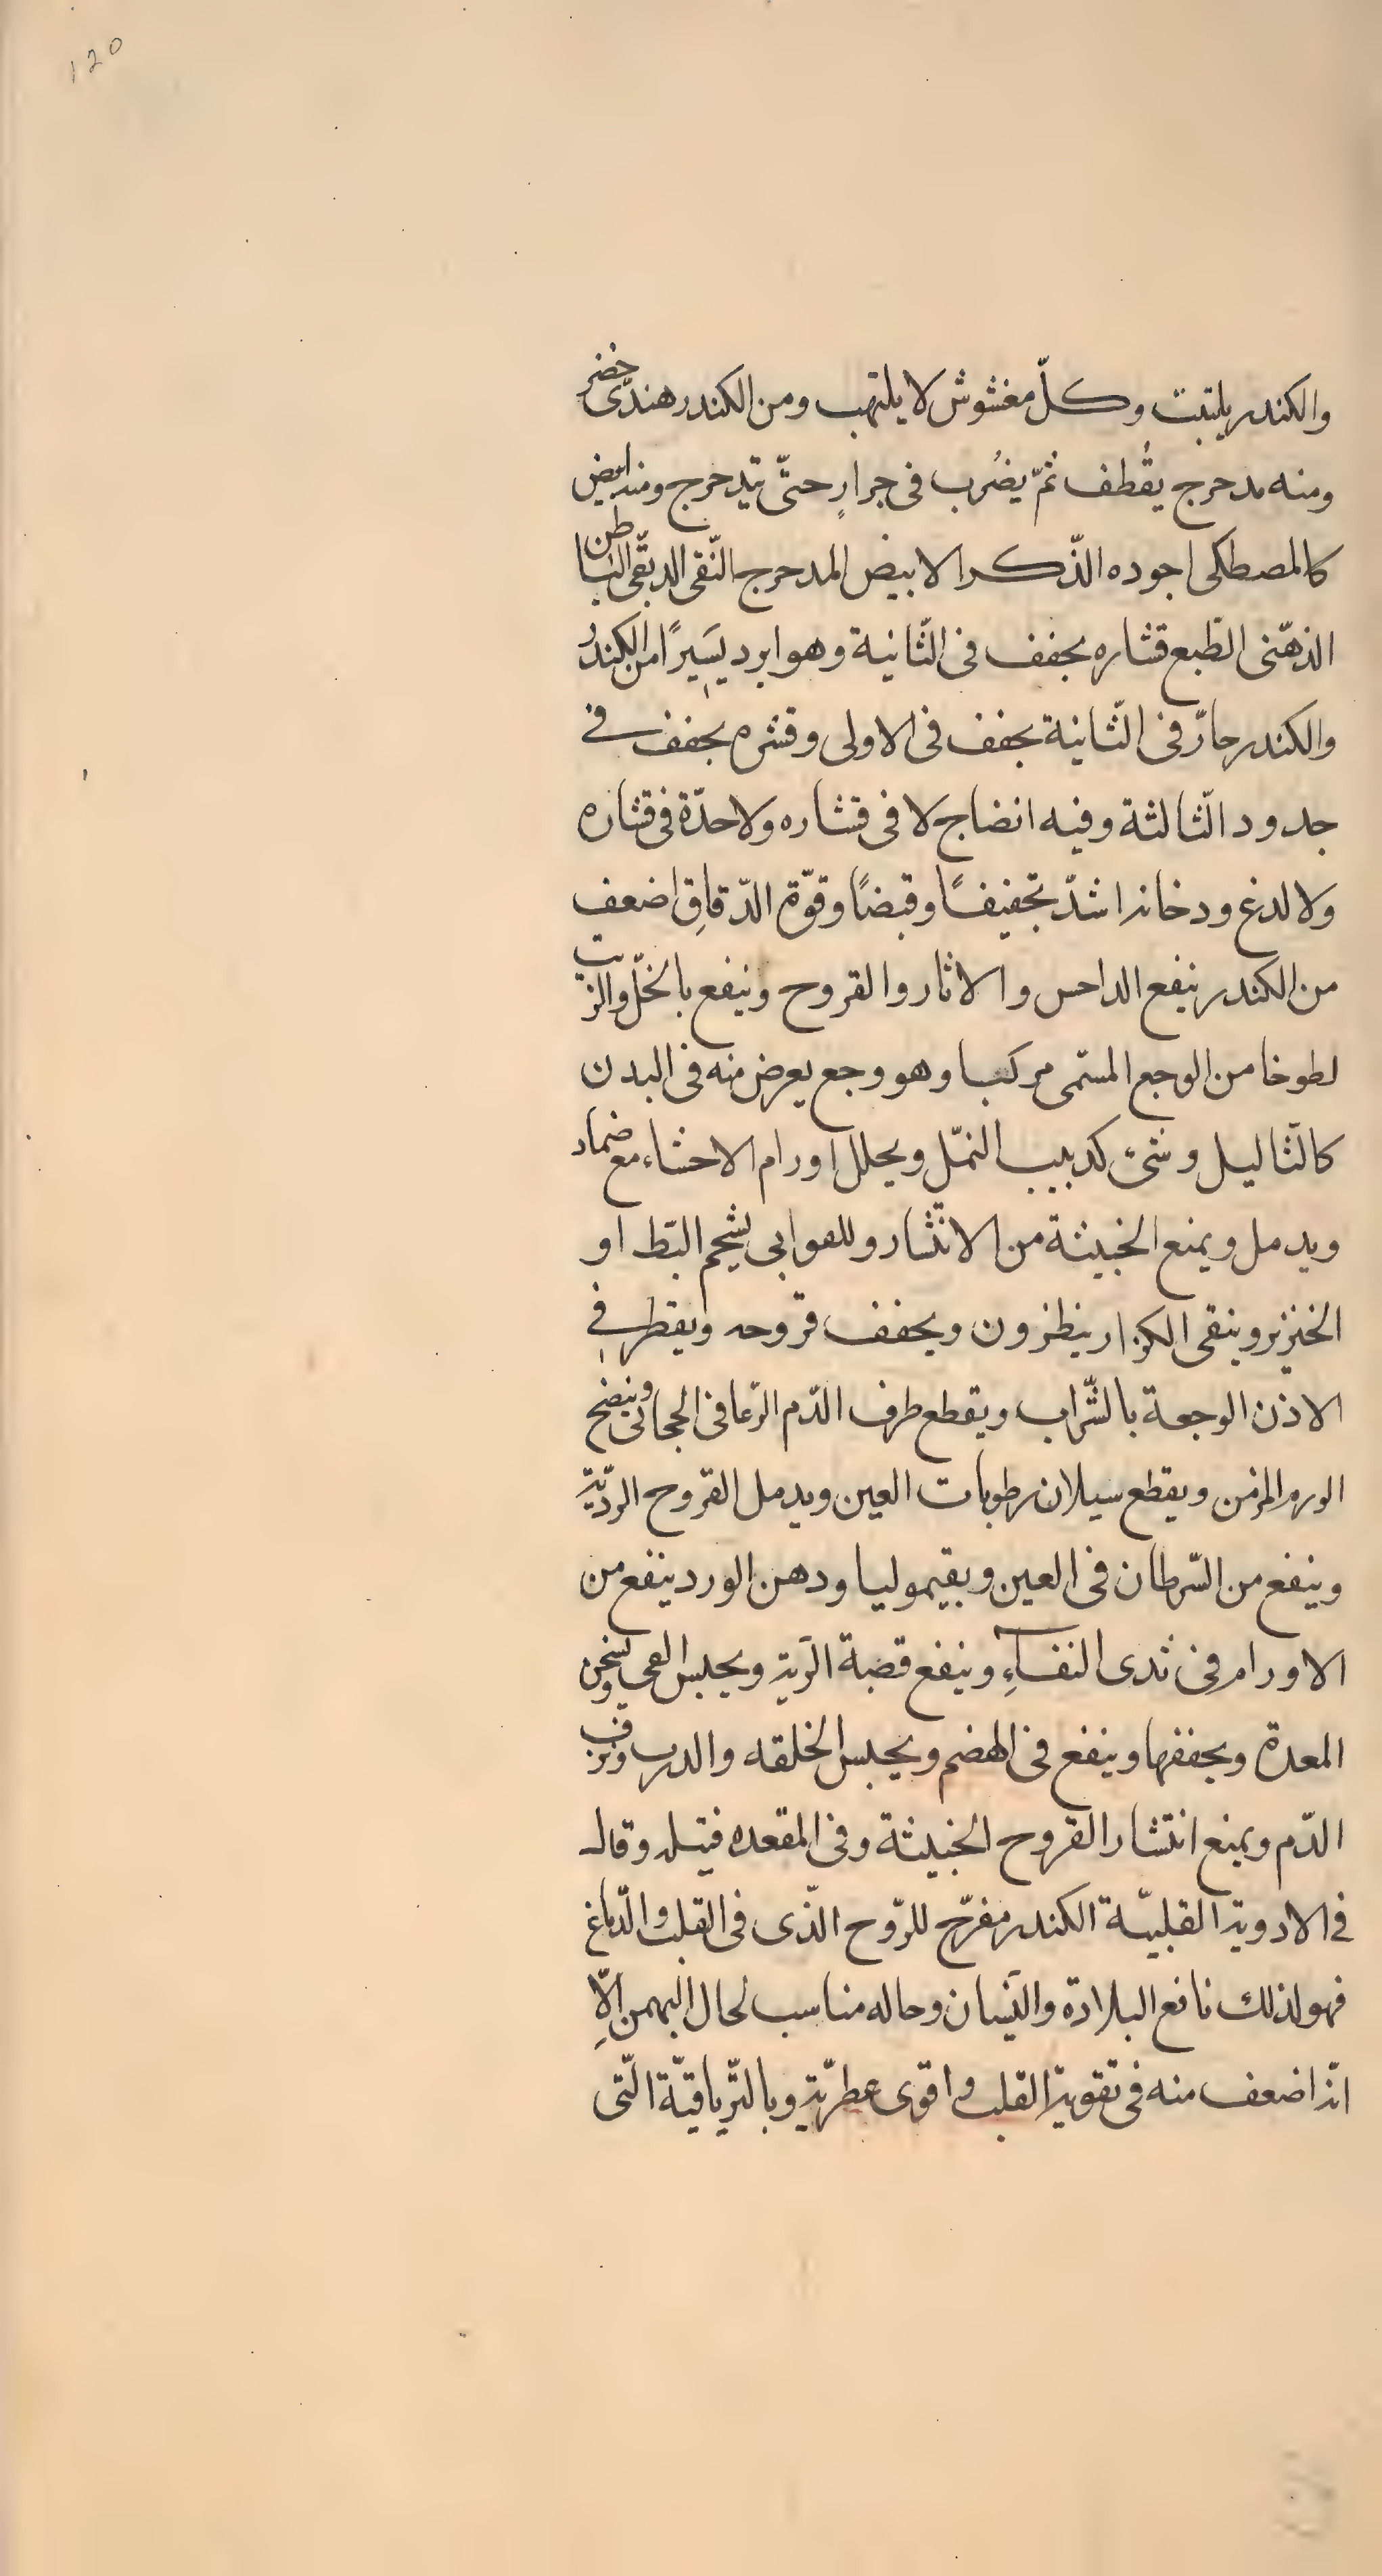 120
والكندر يلتبت وكلّ مغشوش لا يلتهب ومن الكندر هندىّ خضر
ومنه مدحرج يقُطف ثمّ يضُرب فى جرارٍ حتّى يتدحرج ومنه ابيض
كالمصطكى اجوده الذّكر الابيض المدحرج النّقى الدبقى الباطن
الذهّنى الطّبع قشاره يجفف فى الثّانية وهو ابرد يسَيرًا من الكندُر
والكندر حارّ فى الثّانية يجفف فى الاولى وقشره يجفف فى
حدود الثّالثة وفيه انضاج لا فى قشاره ولا حدّة فى قشاره
ولا لدغ ودخانه اشدّ تجفيفًا وقبضًا وقوّة الدّقاقِ اضعف
من الكندر ينفع الداحس والاثار والقروح وينفع بالخلّ والزيت
لطوخا من الوجع المسمّى مركبا وهو وجع يعرض منه فى البدن
كالثّاليل وشئ كدبيب النمّل ويحلل اورام الاحشاء مع ضماد
ويدمل ويمنع الخبيثة من الانتّشار وللقوابى بشحم البّط او
الخنزير وينقى الكزاز بنطرون ويجفف قروحه ويقطر فى
الاذن الوجعة بالشّراب ويقطع طرف الدّم الرّعافى الحجابى وينضج
الورم المزمن ويقطع سيلان رطوبات العين ويدمل القروح الردّية
وينفع من السّرطان فى العين وبقيموليا ودهن الورد ينفع من
الاورام فى ثدى النفساءِ وينفع قصبة الرّية ويحبس القى ويسخن
المعدة ويجففها وينفع فى الهضم ويحبس الخلقه والدرب ونزف
الدّم ويمنع انتشار القروح الخبيثة وفى المقعده فتيله وقال
فى الادوية القلبيّة الكندر مفرّح للرّوح الذّى فى القلب والدّماغ
فهو لذلك نافع البلادة والنّسيان وحاله مناسب لحال البهمن الاِّ
انّه اضعف منه فى تقوية القلب واقوى عطريّة وبالتّرياقيّة الّتى